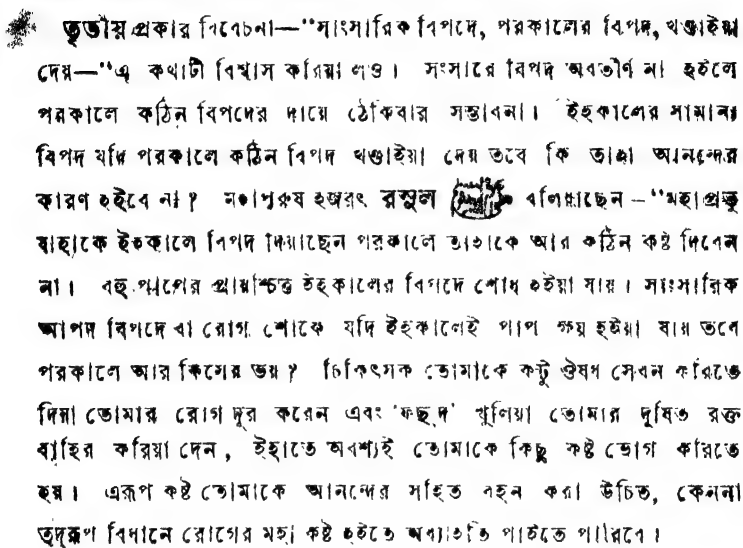 তৃতীয় প্রকার বিবেচনা—"সাংসারিক বিপদে, পরকালের বিপদ, খণ্ডাইয়া
দেয়—"এ কথাটী বিশ্বাস করিয়া লও। সংসারে বিপদ অবতীর্ণ না হইলে
পরকালে কঠিন বিপদের দায়ে ঠেকিবার সম্ভাবনা। ইহকালের সামান্য
বিপদ যদি পরকালে কঠিন বিপদ খণ্ডাইয়া দেয় তবে কি তাহা আনন্দের
কারণ হইবে না? মহাপুরুষ হজরৎ রসুল বলিয়াছেন—"মহাপ্রভু
যাহাকে ইহকালে বিপদ দিয়াছেন পরকালে তাহাকে আর কঠিন কষ্ট দিবেন
না। বহু পাপের প্রায়শ্চিত্ত ইহকালের বিপদে শোধ হইয়া যায়। সাংসারিক
আপদ বিপদে বা রোগ শোকে যদি ইহকালেই পাপ ক্ষয় হইয়া যায় তবে
পরকালে আর কিসের ভয়? চিকিৎসক তোমাকে কটু ঔষধ সেবন করিতে
দিয়া তোমার রোগ দূর করেন এবং 'ফছদ' খুলিয়া তোমার দূষিত রক্ত
বাহির করিয়া দেন, ইহাতে অবশ্যই তোমাকে কিছু কষ্ট ভোগ করিতে
হয়। এরূপ কষ্ট তোমাকে আনন্দের সহিত বহন করা উচিত, কেননা
তদ্রূপ বিধানে রোগের মহা কষ্ট হইতে অব্যাহতি পাইতে পারিবে।